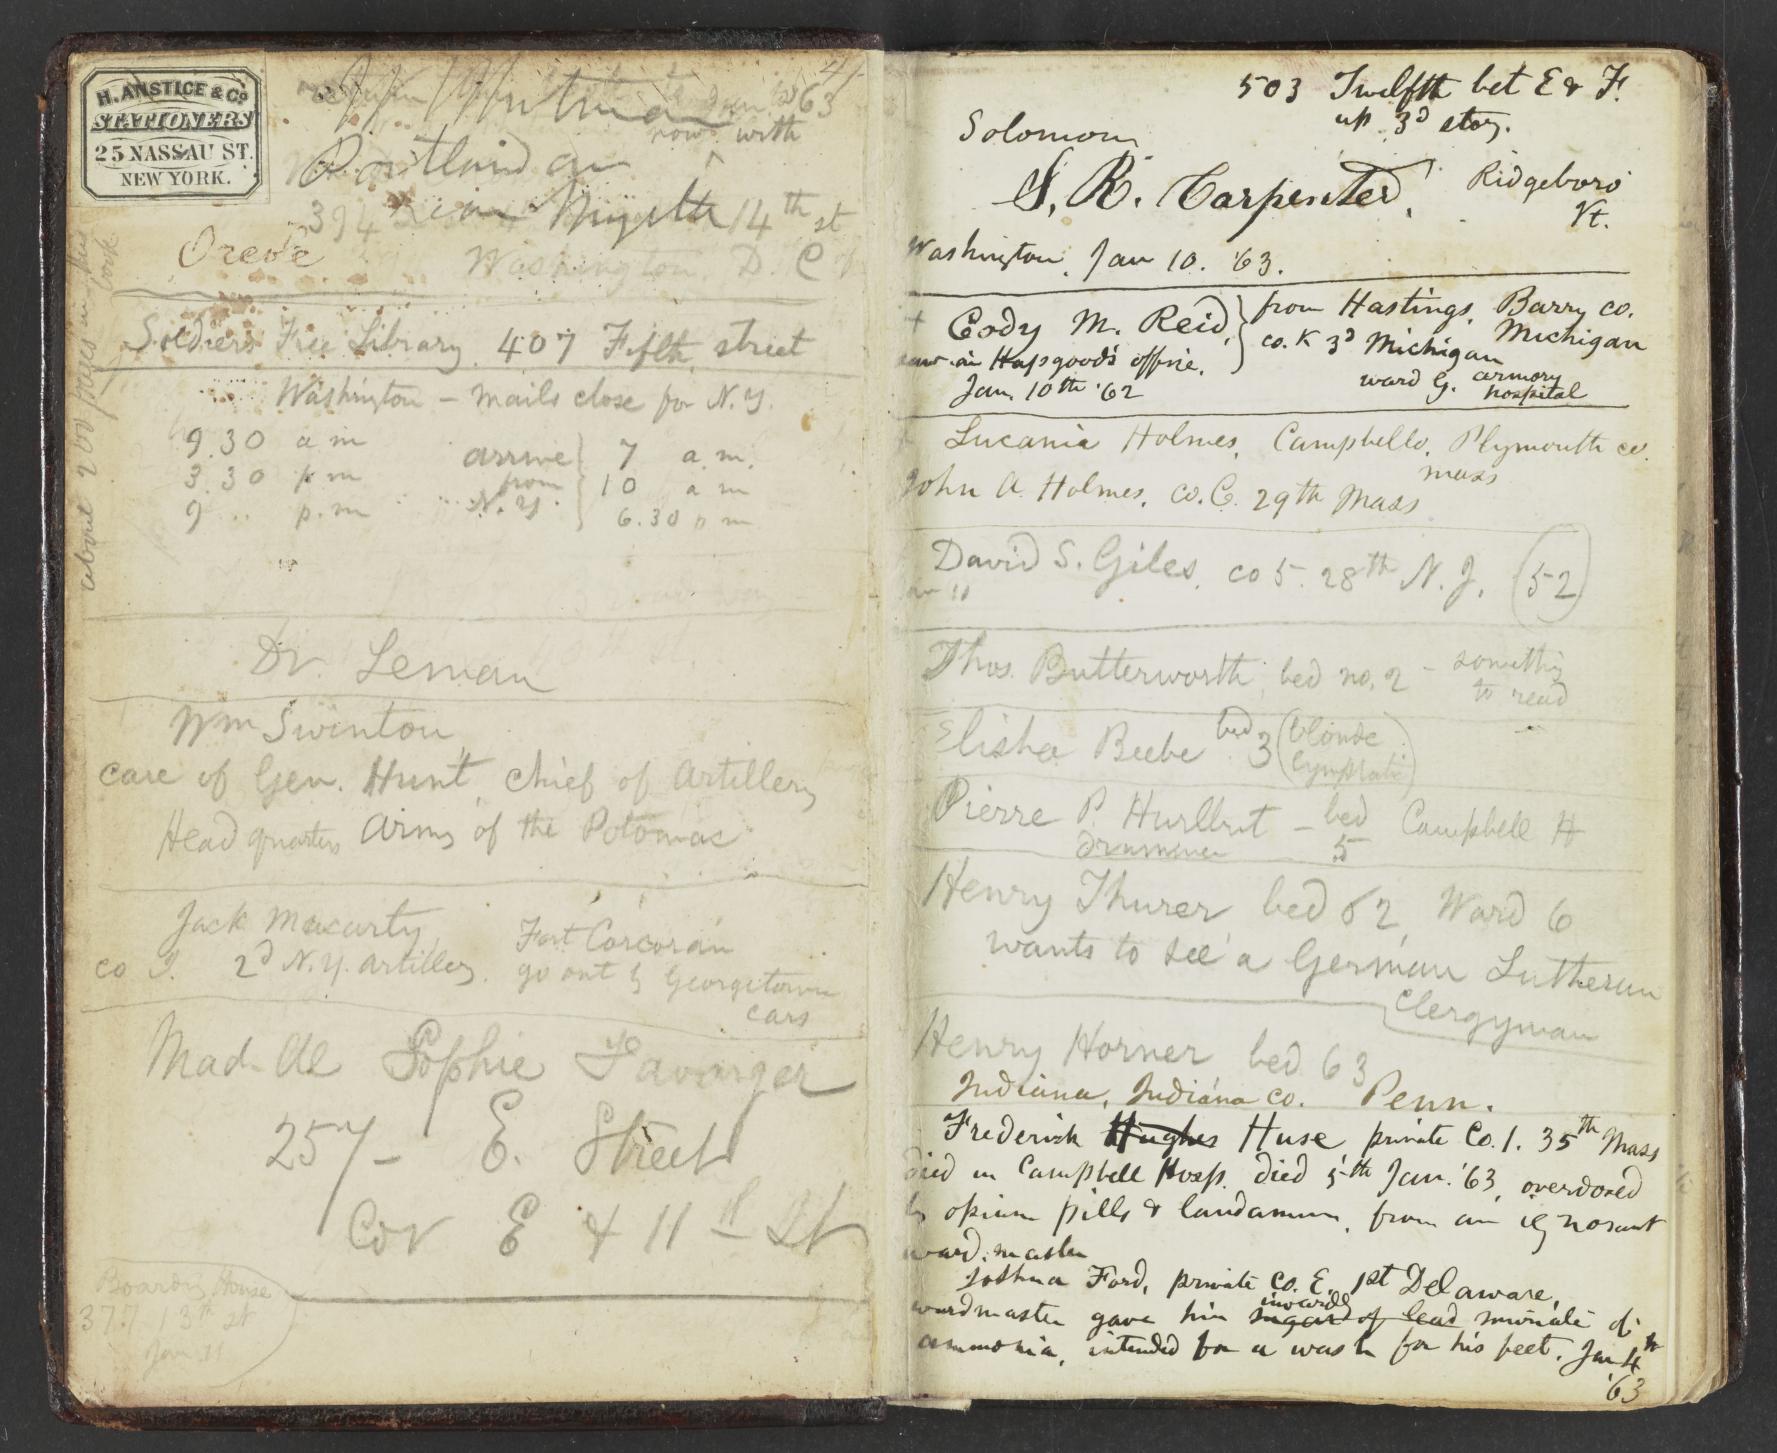 H. ANSTICE & Co
STATIONERS
25 NASSAU ST.
NEW YORK.
Whitman
63
now with
Portland av
394
near Myrtle
14th st
Washington D. C
about 200 pages in this book
Soldiers' Free Library 407 Fifth street
Washington – mails close for N. Y.
9.30 a m
3.30 p m
9 .. p. m
arrive from N. Y.
7 a. m.
10 a m
6.30 p m
Dr. Leman
Wm Swinton
care of Gen. Hunt, chief of artillery
Head quarters Army of the Potomac
Jack Macarty, Fort Corcoran
co 2d N. Y. artillery. go out by Georgetown
cars
Mad. Sophie
257– E. Street
Cor E & 11th St
Boarding House
377 13th st
Jan. 11
503 Twelfth bet E & F.
up 3d story.
Solomon
S. R. Carpenter, Ridgeboro
Vt.
Washington. Jan 10. '63.
+ Cody M. Reid, from Hastings, Barry co.
Michigan
co. K 3d Michigan
saw in Hapgood's office.
Jan. 10th '62
ward G. armory
hospital
Lucania Holmes, Campbello, Plymouth co.
mass
John A. Holmes, co. C. 29th Mass
David S. Giles, co 5. 28th N. J. (52)
Jan 11
Thos. Butterworth, bed no. 2 – something
to read
Elisha Beebe bed 3 (blonde
lymphatic)
Pierre P. Hurlbut – bed 5 Campbell H
drummer
Henry Thurer bed 62, Ward 6
wants to see a German Lutheran
clergyman
Henry Horner bed 63
Indiana, Indiana co. Penn.
Frederick Hughes Huse private Co. I. 35th Mass
died in Campbell Hosp. died 5th Jan. '63, overdosed
by opium pills & laudanum, from an ignorant
ward-master
Joshua Ford, private Co. E. 1st Delaware,
inwardly
wardmaster gave him sugar of lead muriate of
ammonia, intended for a wash for his feet. Jan 4th
'63